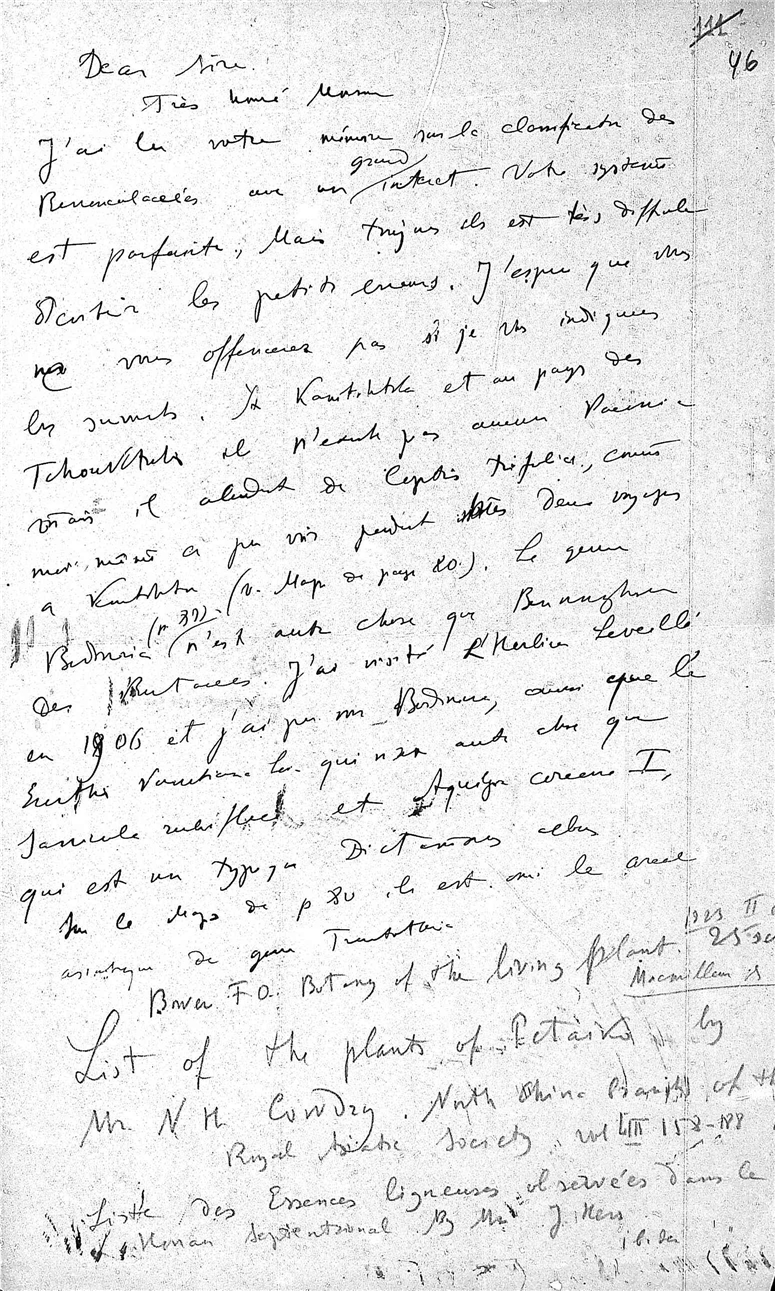 111
46
Dear Sire.
Très
J'ai lu votre mémoire sur la classification des
Renonculacées avec un grand interet. Votre système
est parfaite, Mais toujours ils est très difficile
les petits erreurs. J'espere que vous
ne vous offencerez pas si je vs indiques
les suivants. Kamtchatka et au pays des
il n'existe pas aucun Paeonia
mais il abondent de Coptis trifolia, comme
moi même a pu voir pendant deux voyages
a Kamtchatka (v. Mapa de page 80). Le genre
Bodinieria (p 39) n'est autre chose que Boenninghausenia
des Rutacees. J'ai visité L'Herbier Leveillé
en 1906 et j'ai pu voir Bodinieria, aussi que le
Vaniotiana Lev. qui n'est autre chose que
Sanicula et Aquilegia coreana
qui est un Dictamnus albus
Sur le Mapa de p 80 ils est omi le areal
asiatique de genre Trautvetteria
Bower F O. Botany of the living plant.
1923 II
25
Macmillan
List of the plants of Petaiho by
Mr. N H Cowdry. North China Branch of the
Royal Asiatic Society vol LIII 158-188
Liste des Essences ligneuses observées dans le
Honan septentrional By Mr J. Hers
ibidem